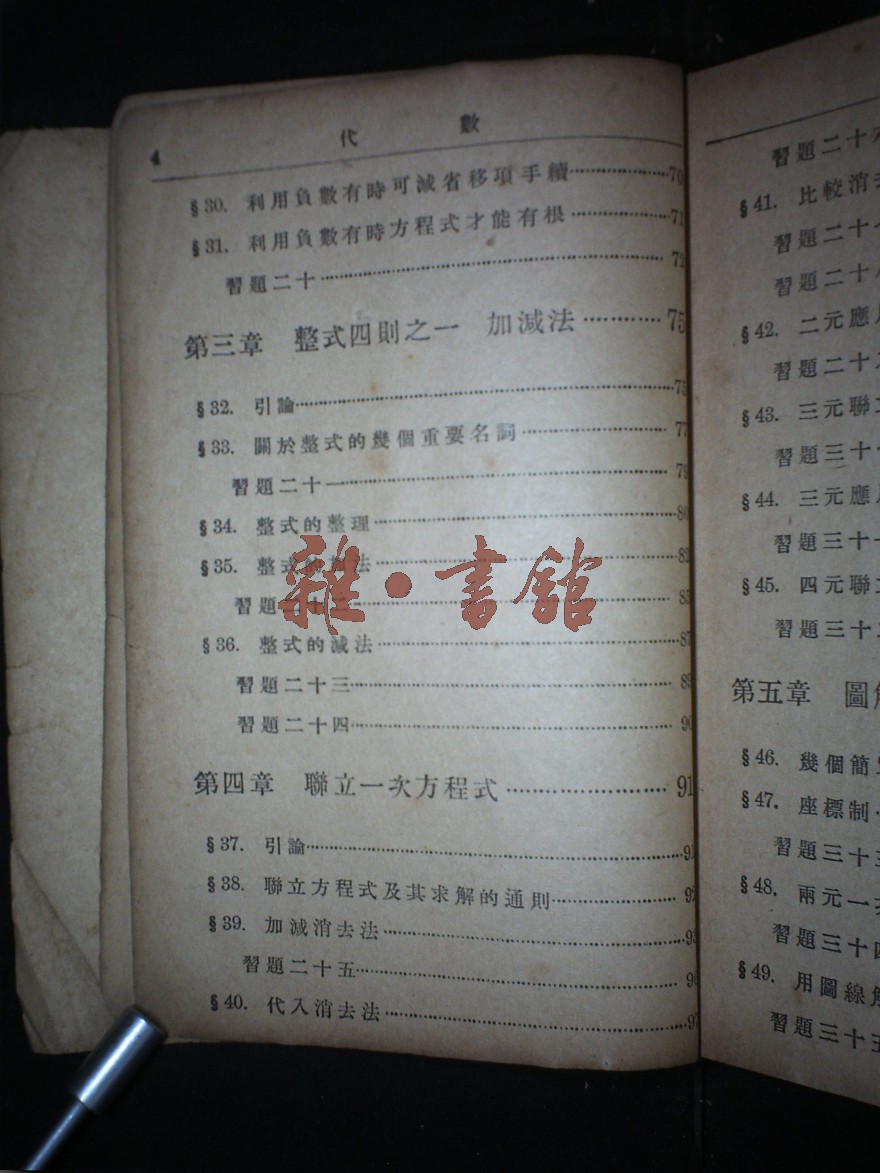 4 代 數
§30. 利用負數有時可減省移項手續 70
§31. 利用負數有時方程式才能有根 71
習題二十 72
第三章 整式四則之一 加減法 75
§32. 引論 75
§33. 關於整式的幾個重要名詞 77
習題二十一 79
§34. 整式的整理 80
§35. 整式的加法 82
習題二十二 85
§36. 整式的減法 87
習題二十三 89
習題二十四 90
第四章 聯立一次方程式 91
§37. 引論 91
§38. 聯立方程式及其求解的通則 92
§39. 加減消去法 93
習題二十五 96
§40. 代入消去法 97
雜·書館
習題二十六
§41. 比較消
習題二十
習題二十
§42. 二元應
習題二十
§43. 三元聯
習題三十
§44. 三元應
習題三十
§45. 四元聯
習題三十二
第五章 圖解
§46. 幾個簡
§47. 座標制
習題三十三
§48. 兩元一次
習題三十四
§49. 用圖線解
習題三十五